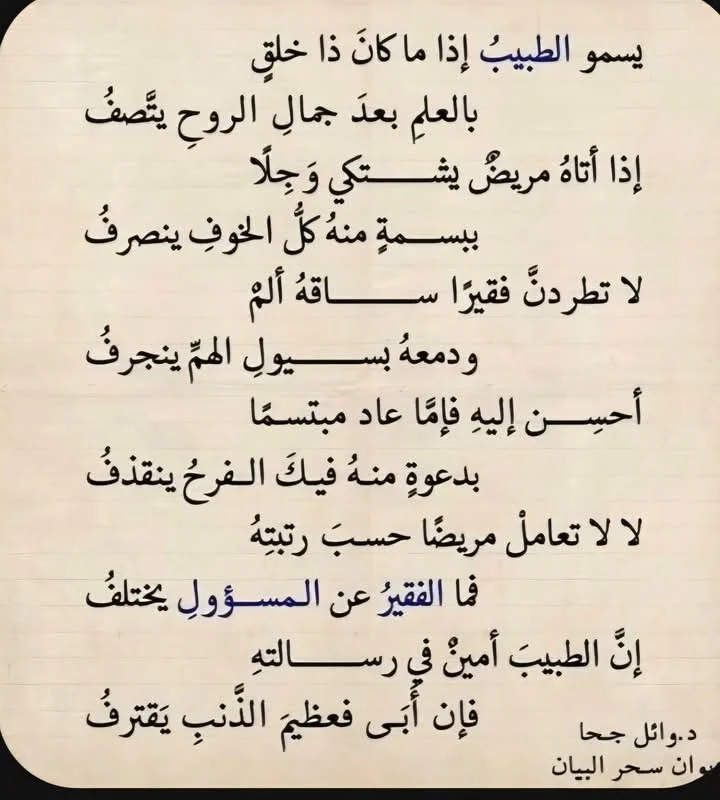 يسمو الطبيبُ إذا ما كانَ ذا خلقٍ
بالعلمِ بعدَ جمالِ الروحِ يتَّصفُ
إذا أتاهُ مريضٌ يشــــتكي وَجِلًا
ببســـمةٍ منهُ كلُّ الخوفِ ينصرفُ
لا تطردنَّ فقيرًا ســــــاقهُ ألمْ
ودمعهُ بســــيولِ الهمِّ ينجرفُ
أحسِــــن إليهِ فإمَّا عاد مبتسمًا
بدعوةٍ منـهُ فيـكَ الـفرحُ ينقذفُ
لا لا تعاملْ مريضًا حسبَ رتبتِهُ
فما الفقيرُ عن المســـؤولِ يختلفُ
إنَّ الطبيبَ أمينٌ في رســــــالتهِ
فإن أَبَـى فعظيمَ الذَّنبِ يَقترفُ
د.وائل جحا
سحر البيان